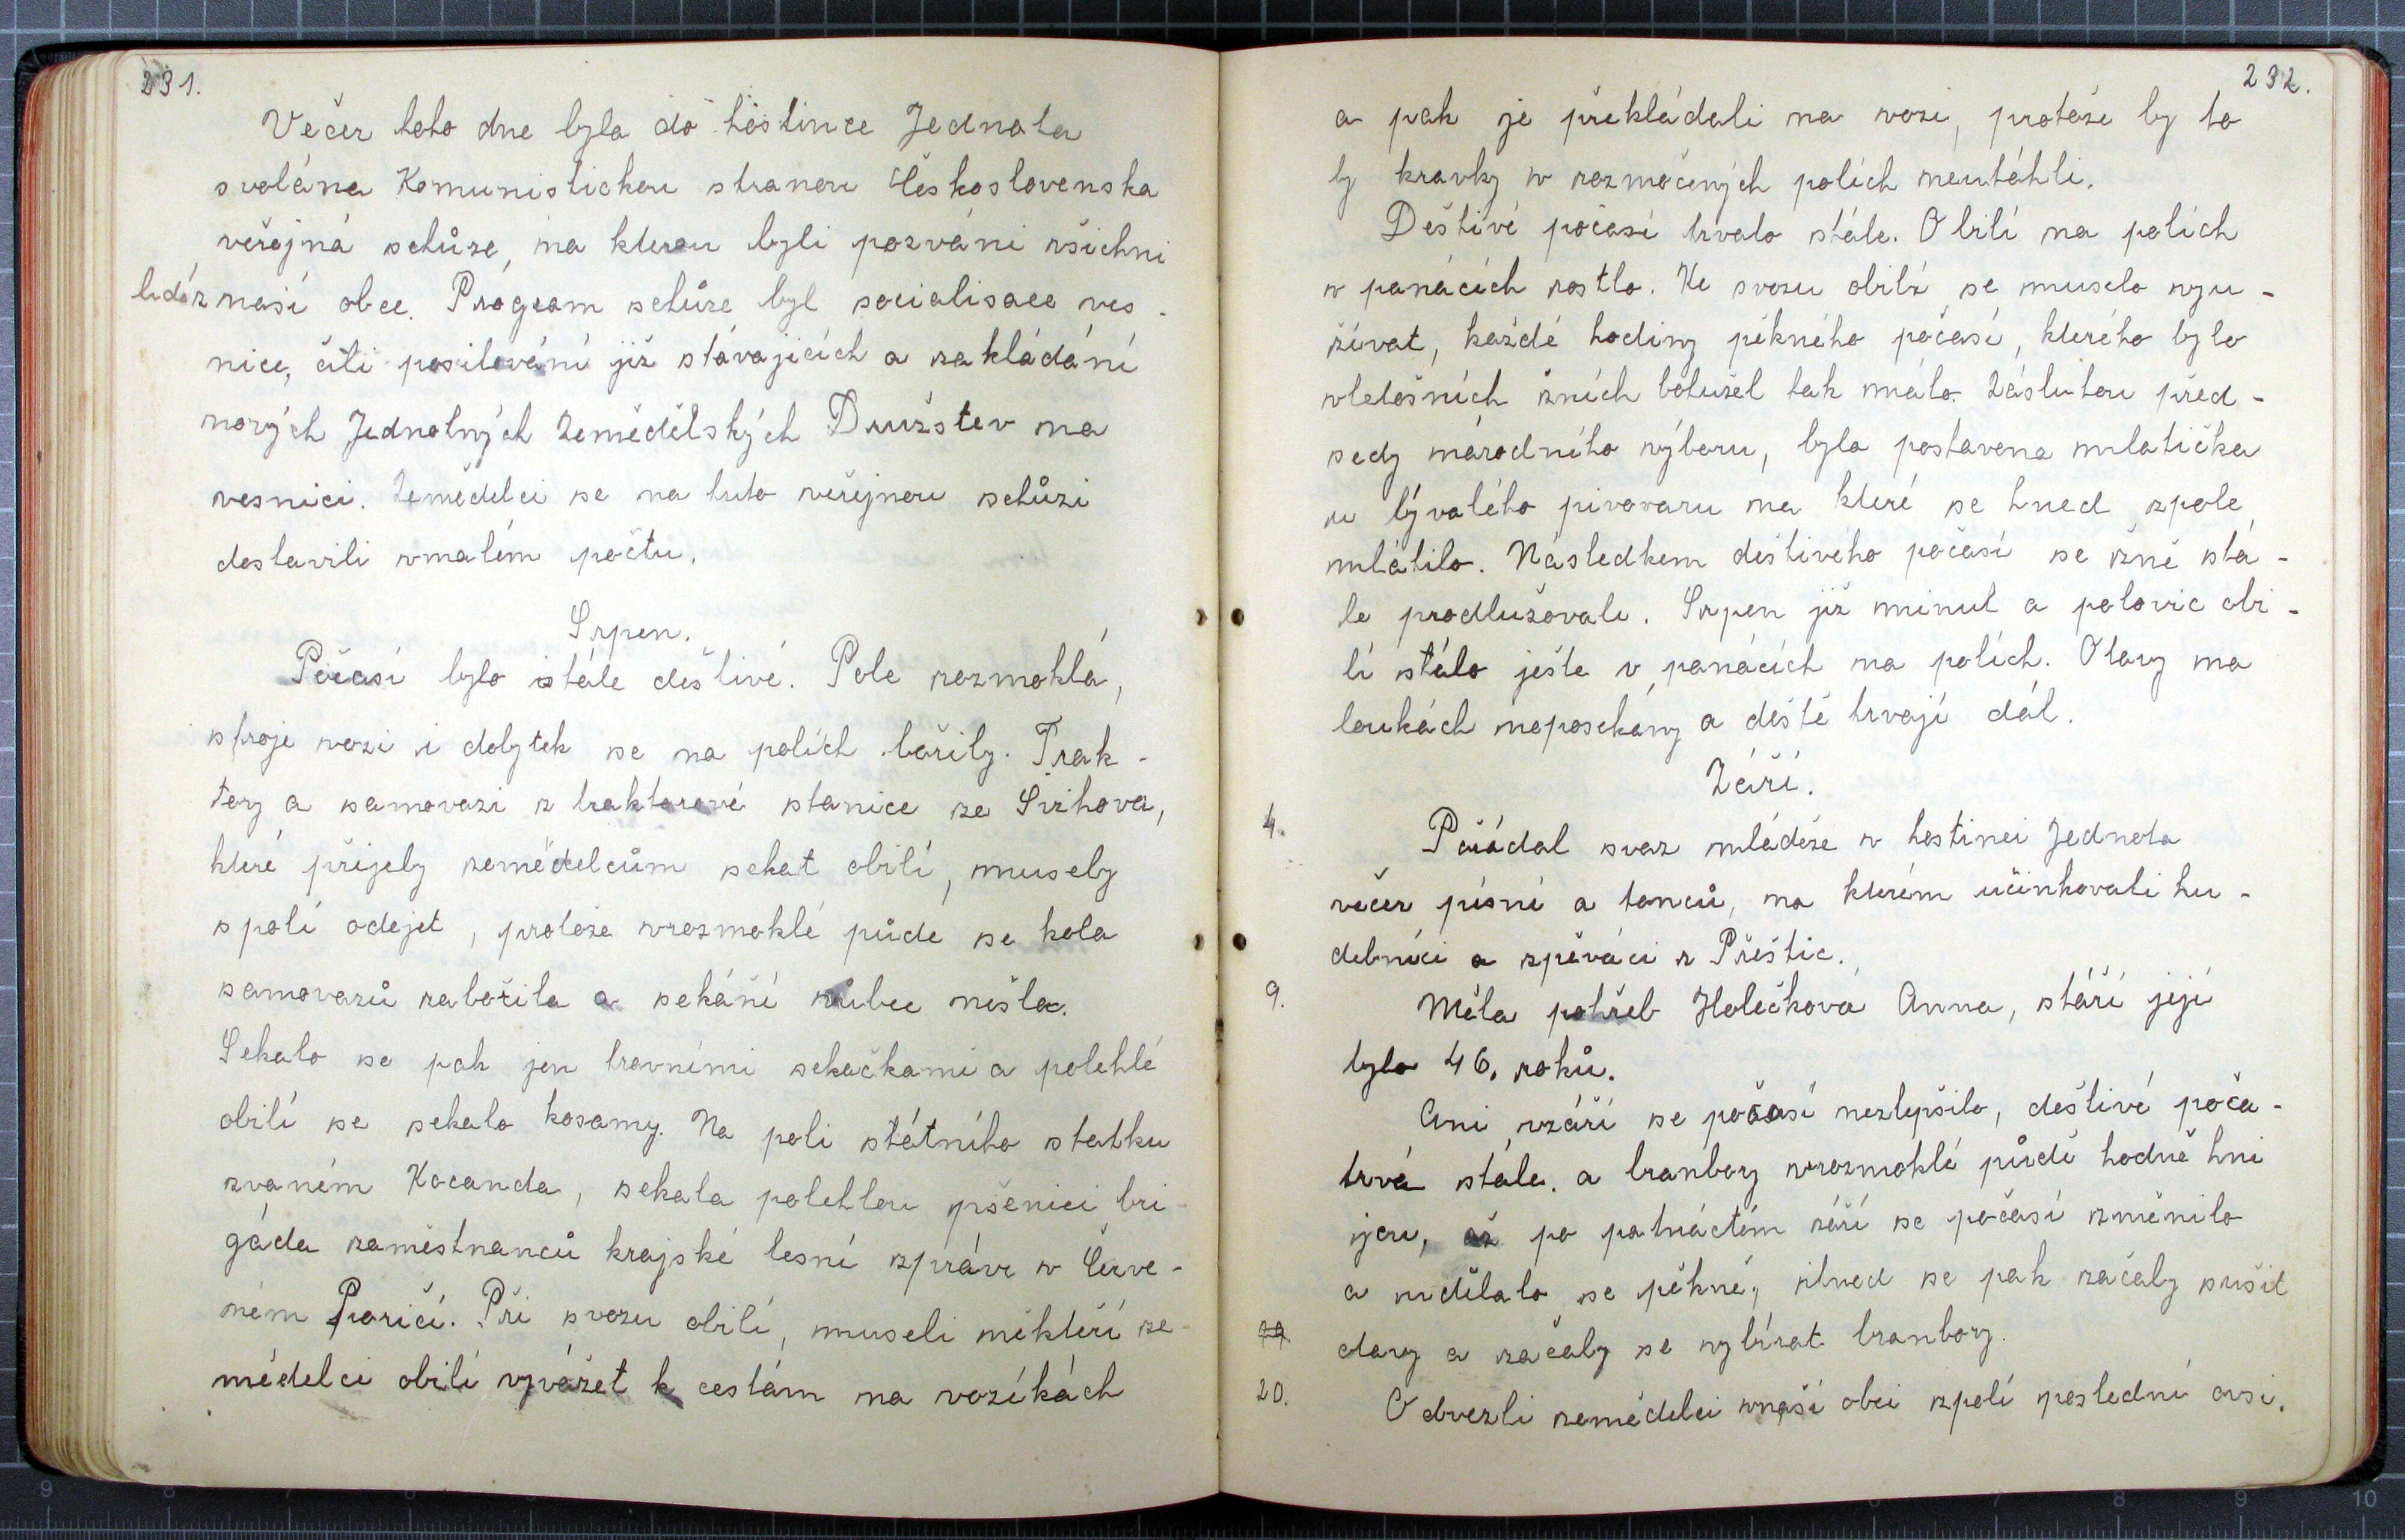 231.
Večer toho dne byla do hostince Jednota
svolána Komunistickou stranou Československa
veřejná schůze, na kterou byli pozváni všichni
lidé z naší obce. Program schůze byl socialisace ves-
nice, čili posilování již stávajících a zakládání
nových Jednotných Zemědělských Družstev na
vesnici. Zemědelci se na tuto veřejnou schůzi
dostavili vmalém počtu.
Srpen.
Počasí bylo stále deštivé. Pole rozmoklá,
stroje vozi i dobytek se na polích bořily. Trak-
tory a samovazi z traktorové stanice ze Švihova,
které přijely zemědelcům sekat obilí, musely
spolí odejet, protože vrozmoklé půdě se kola
samovazů zabořila a sekání vůbec nešlo.
Sekalo se pak jen travními sekačkami a polehlé
obilí se sekalo kosamy. Na poli státního statku
zvaném Kocanda, sekala polehlou pšenici bri
gáda zaměstnanců krajské lesní správi v Červe-
ném Poričí. Při svozu obilí, museli někteří ze-
médelci obilí vyvážet k cestám na vozíkách
232.
a pak je překládali na vozi, protože by to
by kravky v rozmočených polích neutáhli.
Deštivé počasí trvalo stále. Obilí na polích
v panácích rostlo. Ke svozu obilí se muselo vyu-
žívat, každé hodiny pěkného počasí, kterého bylo
vletošních žních bohužel tak málo. Zásluhou před-
sedy národního výboru, byla postavena mlatička
u bývalého pivovaru na které se hned zpole
mlátilo. Následkem deštivého počasí se žně stá-
le prodlužovali. Srpen již minul a polovic obi-
lí stálo ješte v panácích na polích. Otavy na
loukách neposekány a deště trvají dál.
Září.
4.
Pořádal svaz mládeže v hostinci Jednota
večer písní a tanců, na kterém učinkovali hu-
debníci a zpěváci z Přeštic.
9.
Měla pohřeb Holečková Anna, stáří její
bylo 46. roků.
Ani vzáří se počasí nezlepšilo, deštivé poča-
trvá stále. a brambory vrozmoklé půdě hodně hni
jou, až po patnáctém září se počasí změnilo
a udělalo se pěkně, ihned se pak začaly sušit
otavy a začaly se vybírat brambory.
20.
Odvezli zemědelci vnaší obci spolí poslední ovsi.